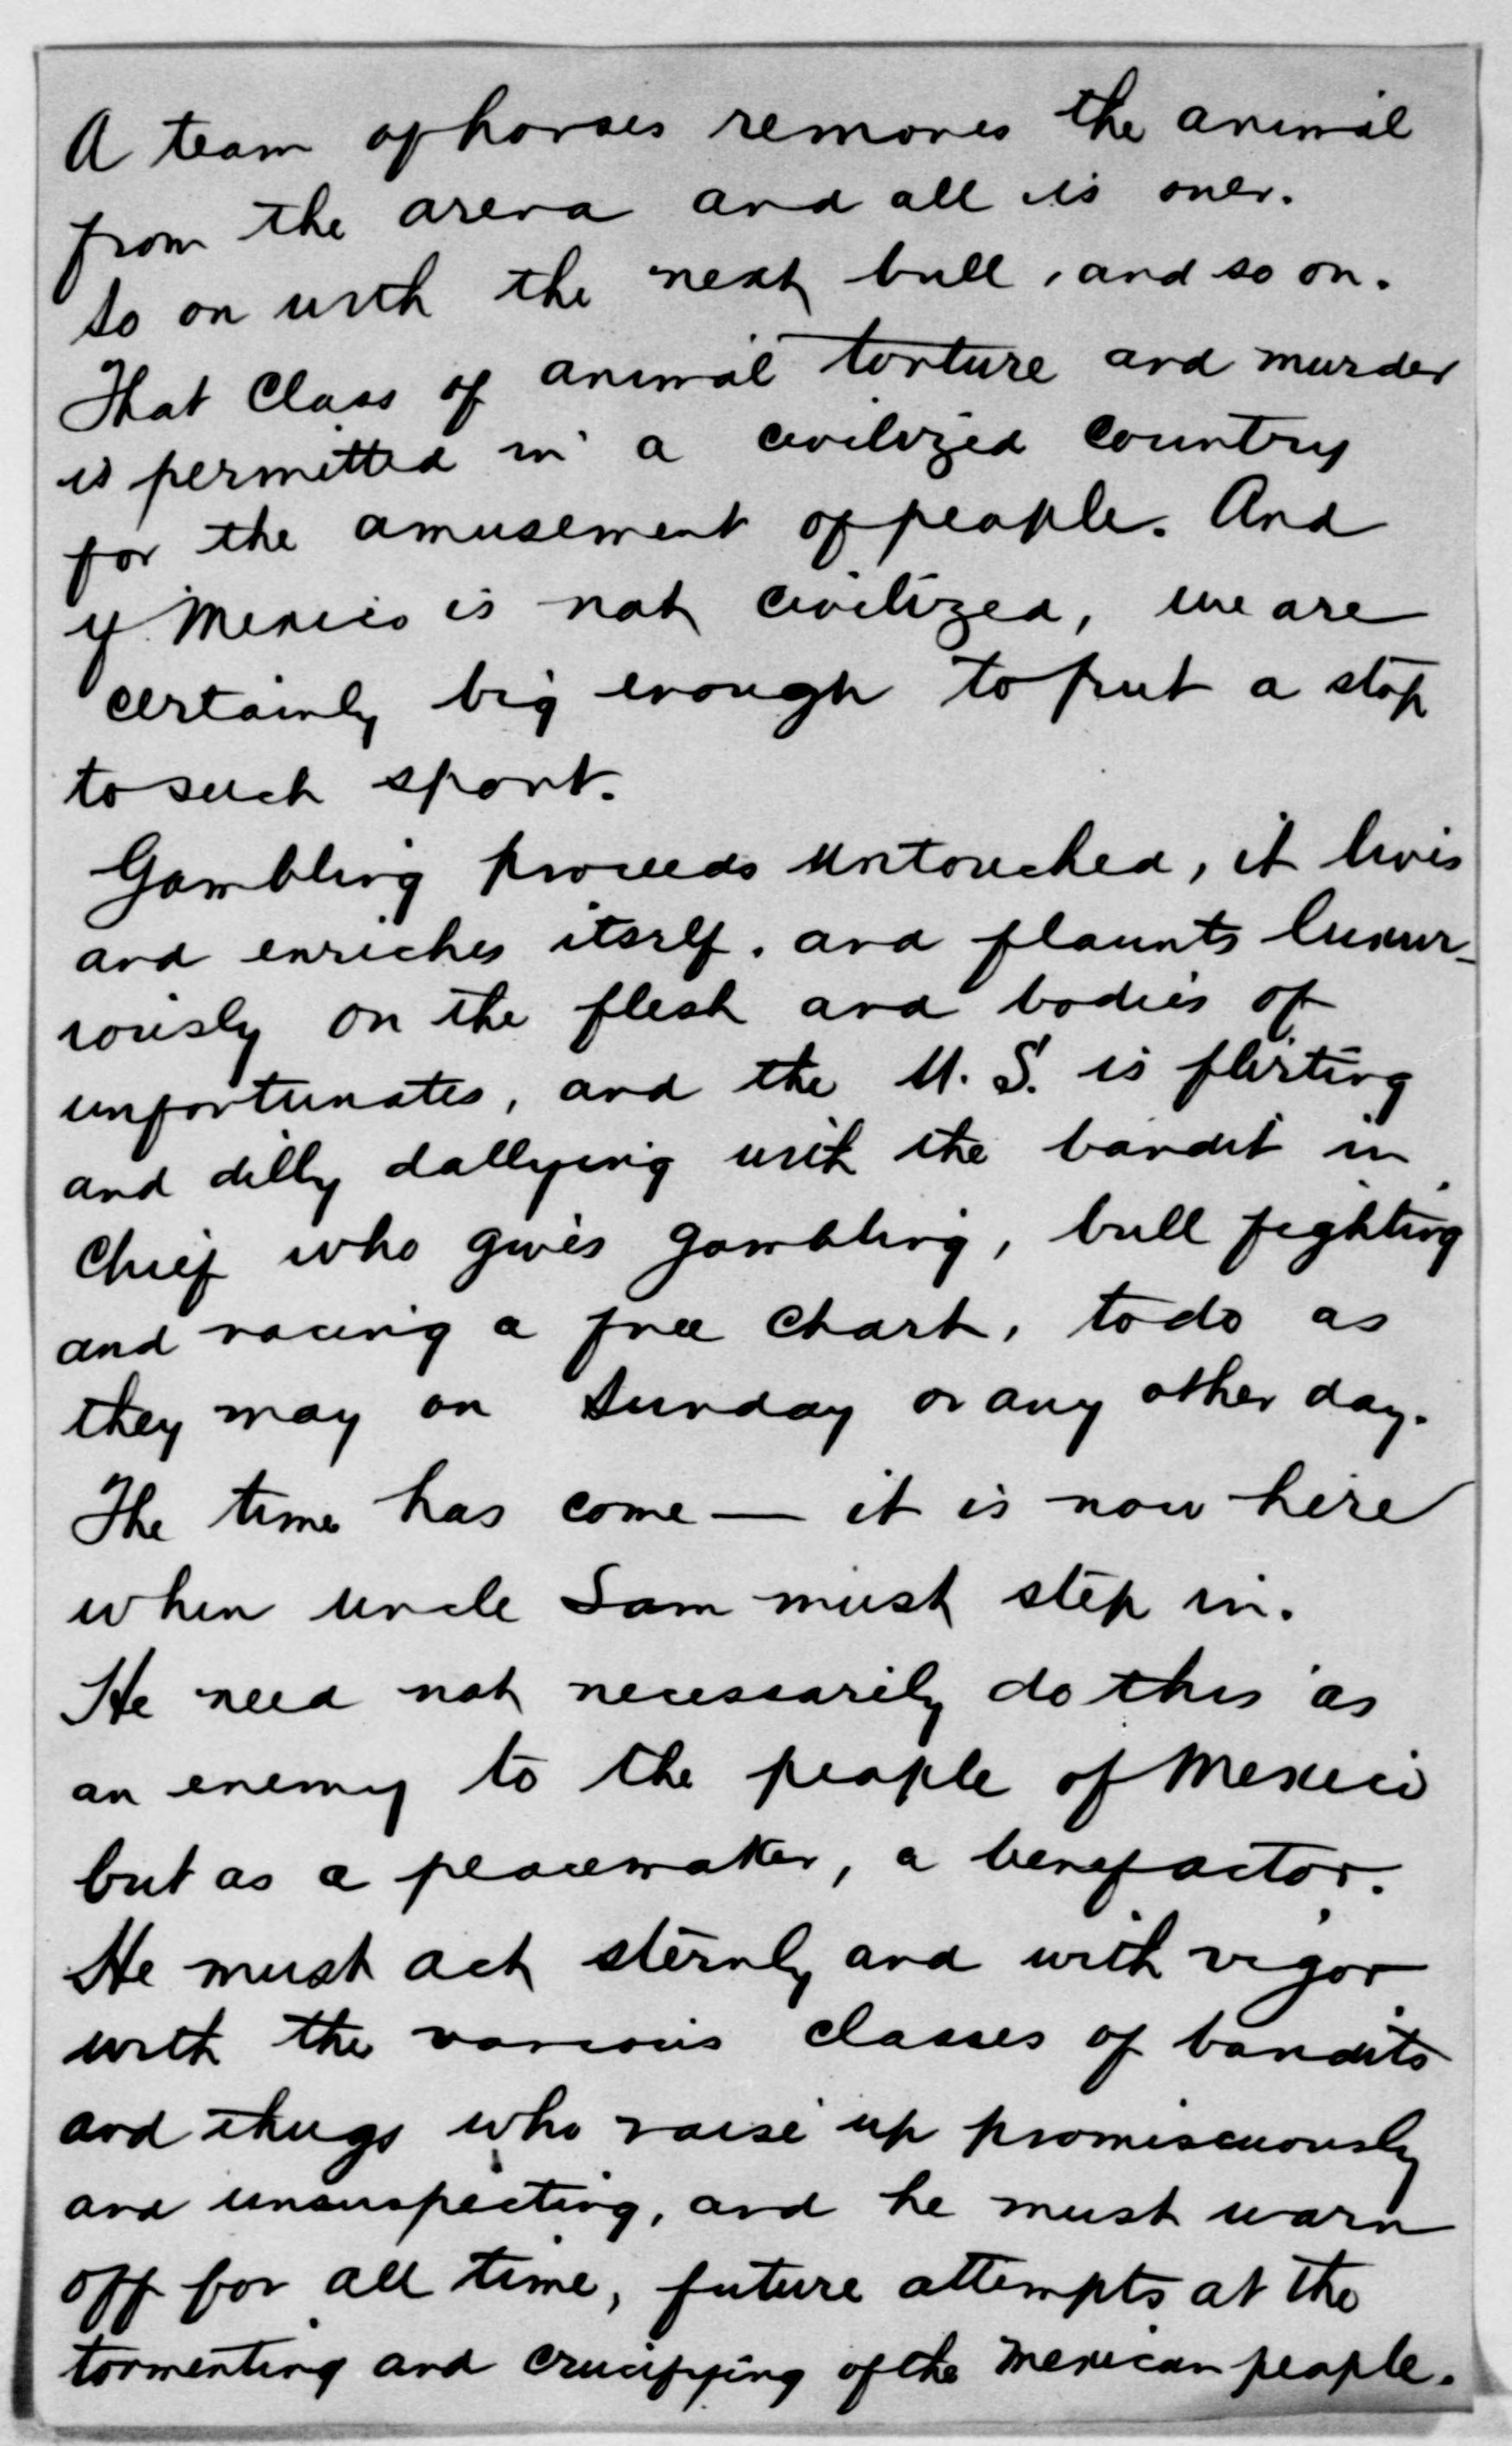 A team of horses removes the animal
from the arena and all is over.
So on with the next bull, and so on.
That Class of animal torture and murder
is permitted in a civilized country
for the amusement of people. And
if Mexico is not civilized, we are
certainly big enough to put a stop
to such sport.
Gambling proceeds untouched, it lives
and enriches itself, and flaunts luxur-
iously on the flesh and bodies of
unfortunates, and the U. S. is flirting
and dilly dallying with the bandit in
Chief who gives gambling, bull fighting
and racing a free chart, to do as
they may on Sunday or any other day.
The time has come — it is now here
when uncle Sam must step in.
He need not necessarily do this as
an enemy to the people of Mexico
but as a peacemaker, a benefactor.
He must act sternly and with vigor
with the various classes of bandits
and thugs who raise up promiscuously
and unsuspecting, and he must warn
off for all time, future attempts at the
tormenting and crucifying of the Mexican people.